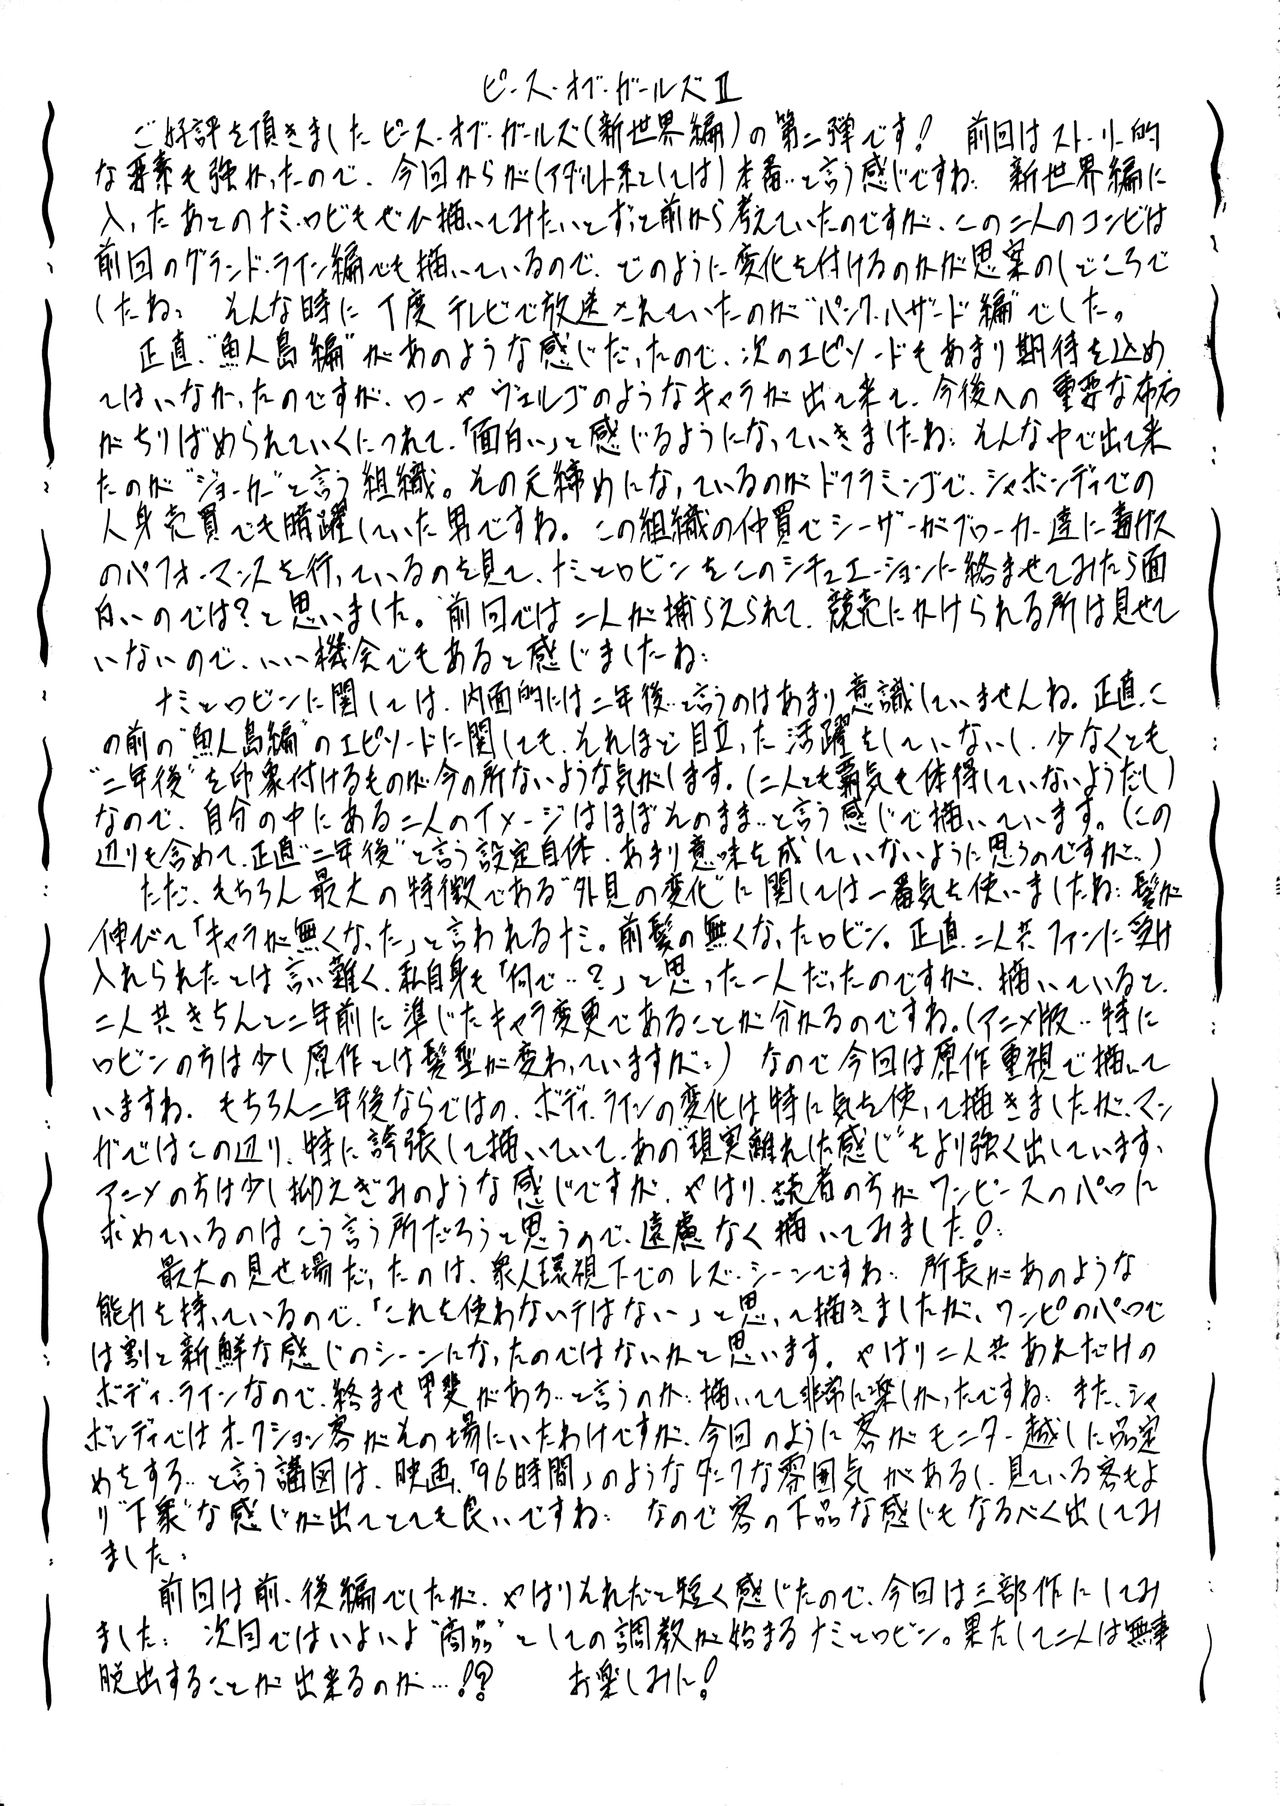 ピース・オブ・ガールズⅡ
ご好評を頂きましたピース・オブ・ガールズ(新世界編)の第二弾です! 前回はストーリー的
な要素も強かったので、今回からが(アダルト系としては)本番‥と言う感じですね‥ 新世界編に
入ったあとのナミ・ロビもぜひ描いてみたいとずっと前から考えていたのですが、この二人のコンビは
前回のグランド・ライン編でも描いているので、どのように変化を付けるのかが思案のしどころで
したね‥ そんな時に丁度テレビで放送されていたのが“パンク・ハザード編”でした。
正直、“魚人島編”があのような感じだったので、次のエピソードもあまり期待を込め
てはいなかったのですが、ローやヴェルゴのようなキャラが出て来て、今後への重要な布石
がちりばめられていくにつれて、「面白い」と感じるようになっていきましたね‥ そんな中で出て来
たのが“ジョーカー”と言う組織。その元締めになっているのがドフラミンゴで、シャボンディでの
人身売買でも暗躍していた男ですね。この組織の仲買でシーザーがブローカー達に毒ガス
のパフォーマンスを行っているのを見て、ナミとロビンをこのシチュエーションに絡ませてみたら面
白いのでは?と思いました。前回では二人が捕らえられて、競売にかけられる所は見せて
いないので、いい機会でもあると感じましたね‥
ナミとロビンに関しては、内面的には二年後‥と言うのはあまり意識していませんね。正直、こ
の前の“魚人島編”のエピソードに関しても、それほど目立った活躍をしていないし、少なくとも
“二年後”を印象付けるものが今の所ないような気がします。(二人とも覇気も体得していないようだし)
なので、自分の中にある二人のイメージはほぼそのまま‥と言う感じで描いています。(この
辺りも含めて、正直“二年後”と言う設定自体、あまり意味を成していないように思うのですが‥)
ただ、もちろん最大の特徴である“外見の変化”に関しては一番気を使いましたね‥髪が
伸びて「キャラが無くなった」と言われるナミ。前髪の無くなったロビン。正直、二人共ファンに受け
入れられたとは言い難く、私自身も「何で‥?」と思った一人だったのですが、描いていると、
二人共きちんと二年前に準じたキャラ変更であることが分かるのですね。(アニメ版‥特に
ロビンの方は少し原作とは髪型が変わっていますが‥) なので今回は原作重視で描いて
いますね。もちろん二年後ならではの、ボディ・ラインの変化は特に気を使って描きましたが、マン
ガではこの辺り、特に誇張して描いていて、あの“現実離れした感じ”をより強く出しています。
アニメの方は少し抑えぎみのような感じですが、やはり、読者の方がワンピースのパロに
求めているのはこう言う所だろうと思うので、遠慮なく描いてみました!
最大の見せ場だったのは、衆人環視下でのレズ・シーンですね‥ 所長があのような
能力を持っているので、「これを使わないテはない」と思って描きましたが、ワンピのパロで
は割と新鮮な感じのシーンになったのではないかと思います。やはり二人共あれだけの
ボディ・ラインなので、絡ませ甲斐がある‥と言うのか‥描いてて非常に楽しかったですね‥ また、シャ
ボンディではオークション客がその場にいたわけですが、今回のように客がモニター越しに品定
めをする‥と言う構図は、映画、「96時間」のようなダークな雰囲気があるし、見ている客もよ
り“下衆”な感じが出てとても良いですね‥ なので客の下品な感じもなるべく出してみ
ました。
前回は前、後編でしたが、やはりそれだと短く感じたので、今回は三部作にしてみ
ました‥ 次回ではいよいよ“商品”としての調教が始まるナミとロビン。果たして二人は無事
脱出することが出来るのか…!? お楽しみに!